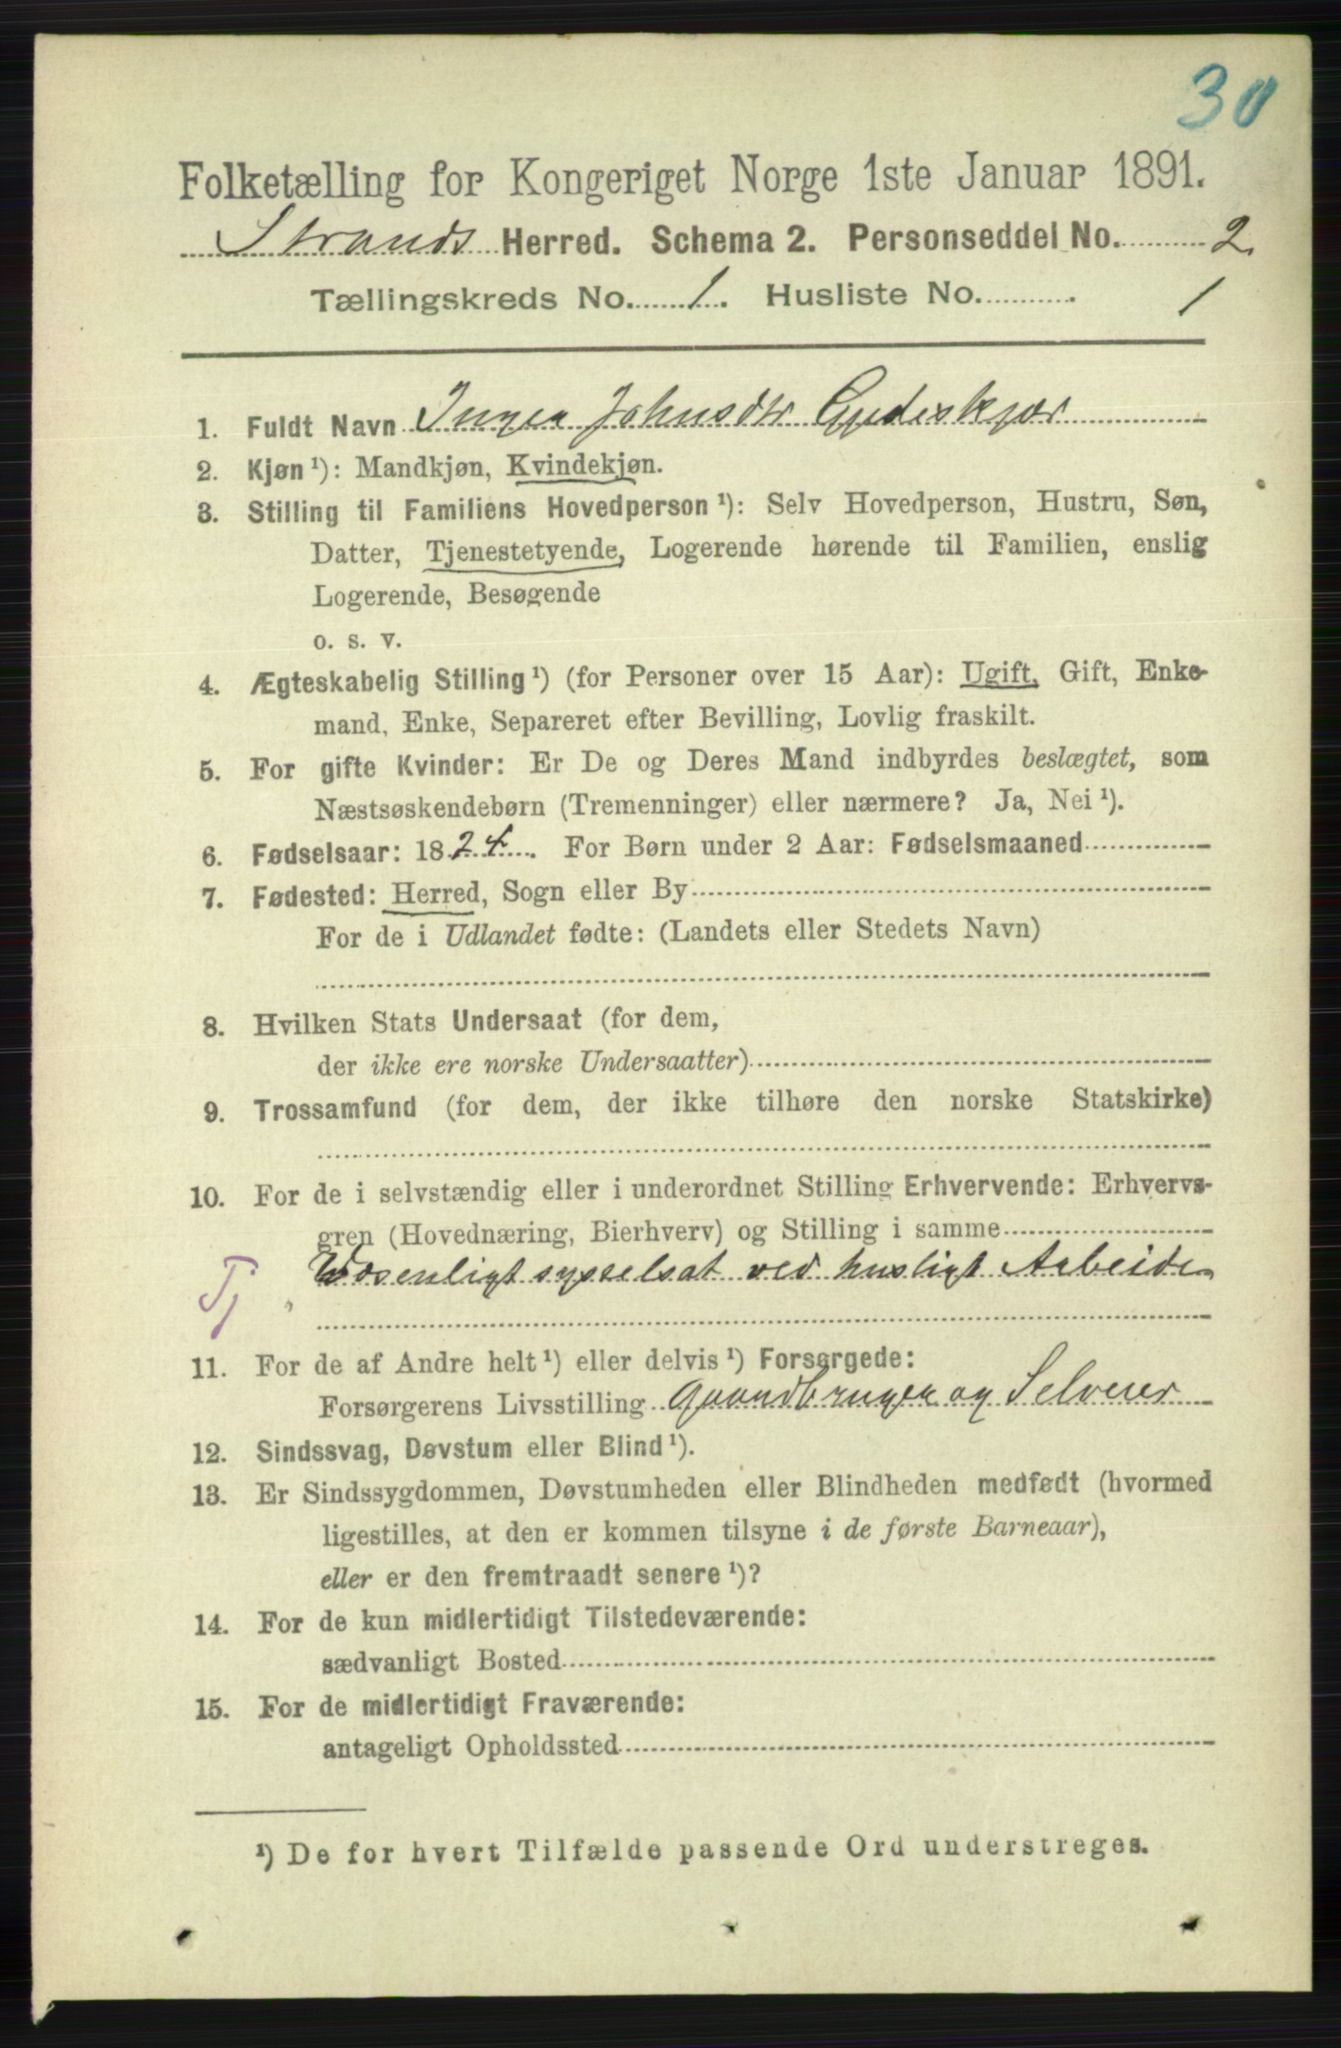 30
Folketælling for Kongeriget Norge 1ste Januar 1891.
Strands Herred. Schema 2. Personseddel No. 2.
Tællingskreds No. 1. Husliste No. 1
1. Fuldt Navn Inger Johnsdtr
2. Kjøn ¹): Mandkjøn, Kvindekjøn.
3. Stilling til Familiens Hovedperson ¹): Selv Hovedperson, Hustru, Søn,
Datter, Tjenestetyende, Logerende hørende til Familien, enslig
Logerende, Besøgende
o. s. v.
4. Ægteskabelig Stilling ¹) (for Personer over 15 Aar): Ugift, Gift, Enke-
mand, Enke, Separeret efter Bevilling, Lovlig fraskilt.
5. For gifte Kvinder: Er De og Deres Mand indbyrdes beslægtet, som
Næstsøskendebørn (Tremenninger) eller nærmere? Ja, Nei ¹).
6. Fødselsaar: 1824. For Børn under 2 Aar: Fødselsmaaned
7. Fødested: Herred, Sogn eller By
For de i Udlandet fødte: (Landets eller Stedets Navn)
8. Hvilken Stats Undersaat (for dem,
der ikke ere norske Undersaatter)
9. Trossamfund (for dem, der ikke tilhøre den norske Statskirke)
10. For de i selvstændig eller i underordnet Stilling Erhvervende: Erhvervs-
gren (Hovednæring, Bierhverv) og Stilling i samme
Tj Væsenligt sysselsat ved husligt Arbeide
11. For de af Andre helt ¹) eller delvis ¹) Forsørgede:
Forsørgerens Livsstilling Gaardbruger og Selveier
12. Sindssvag, Døvstum eller Blind ¹).
13. Er Sindssygdommen, Døvstumheden eller Blindheden medfødt (hvormed
ligestilles, at den er kommen tilsyne i de første Barneaar),
eller er den fremtraadt senere ¹)?
14. For de kun midlertidigt Tilstedeværende:
sædvanligt Bosted
15. For de midlertidigt Fraværende:
antageligt Opholdssted
¹) De for hvert Tilfælde passende Ord understreges.